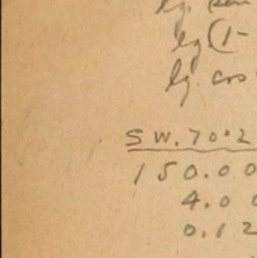 lg. sin
lg(1-
lg. cos
SW. 70.2
150.00
4.0
0.12